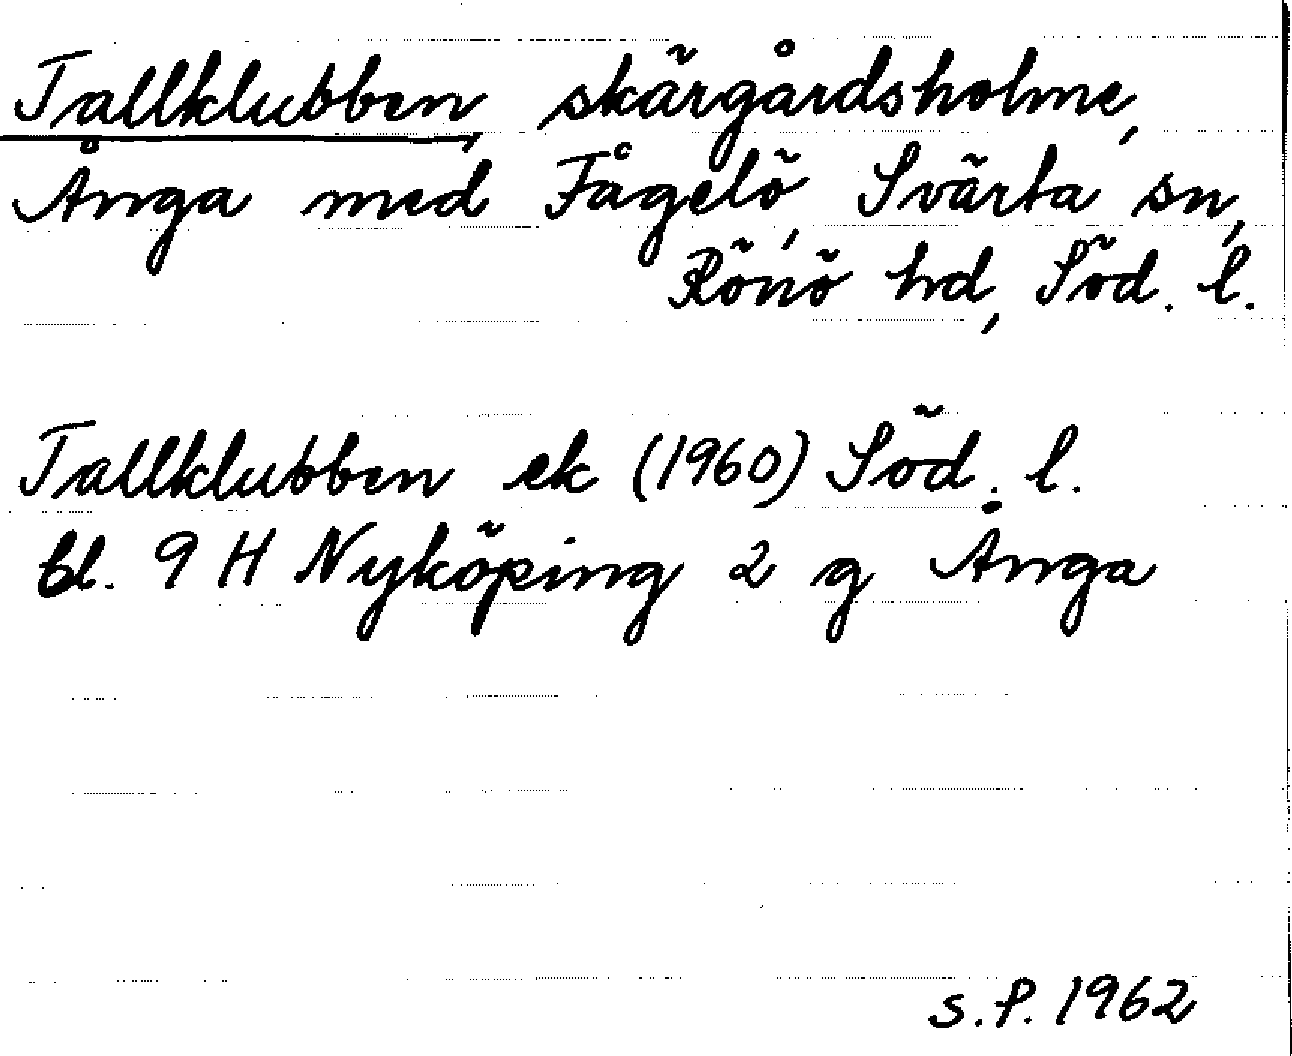 Tallklubben, skärgårdsholme,
Ånga med Fågelö, Svärta sn,
Rönö hd, Söd. l.
Tallklubben ek (1960) Söd. l.
bl. 9 H Nyköping 2 g Ånga
S.P. 1962